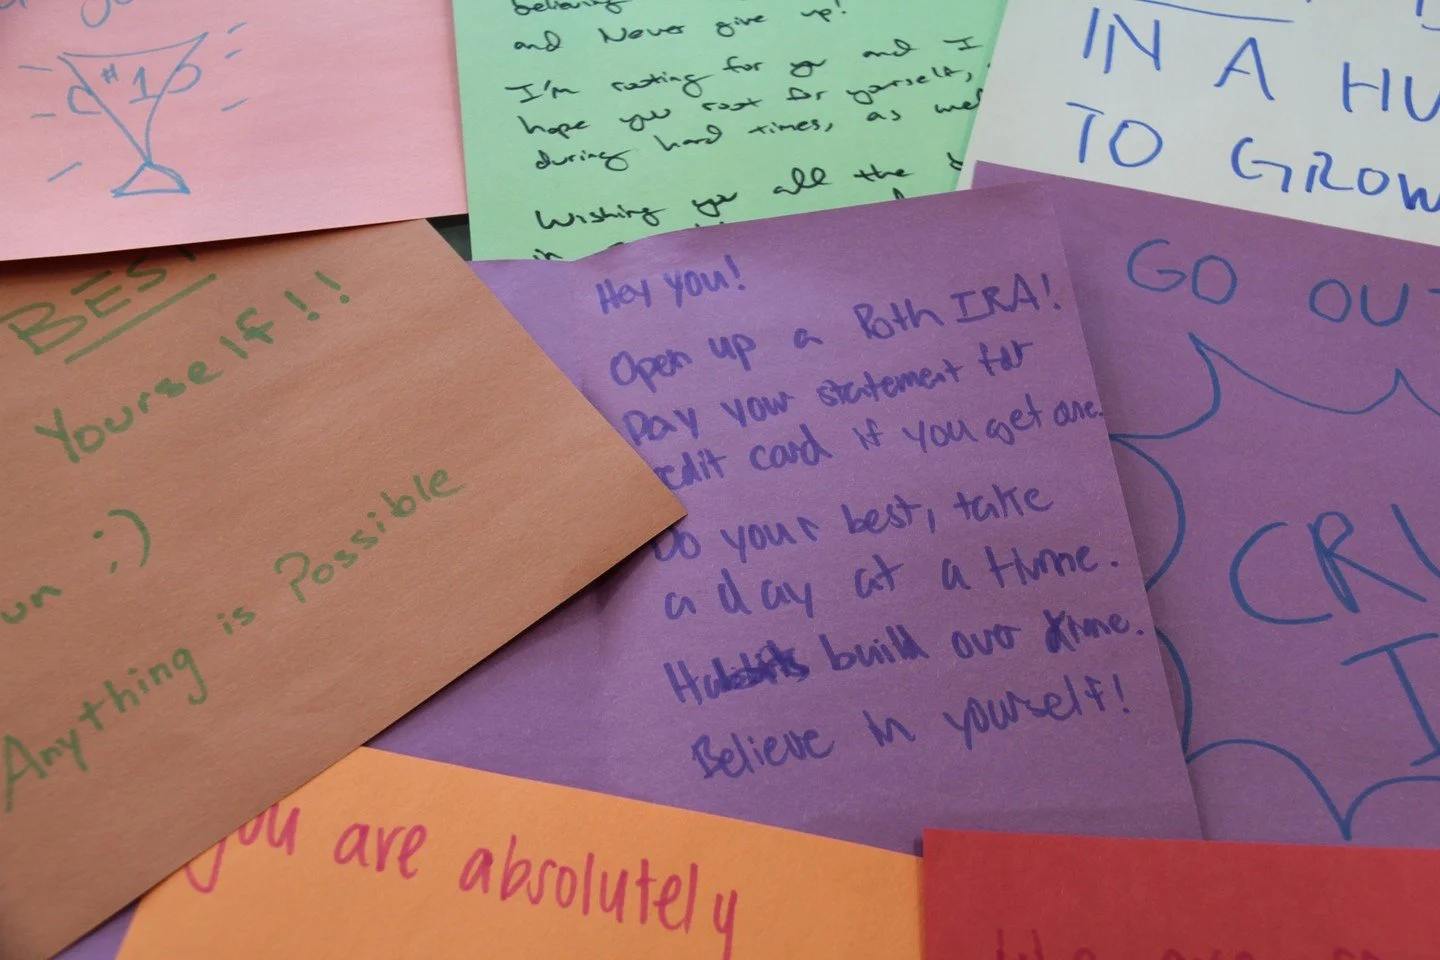 #1
believing
and Never give up!
I'm rooting for you and I
hope you root for yourself,
during hard times, as well
Wishing you all the
in
IN A HU
TO GROW
BEST
Yourself!!
un :)
Anything is Possible
Hey you!
Open up a Roth IRA!
Pay your statement for
edit card if you get one.
Do your best, take
a day at a time.
Habits build over time.
Believe in yourself!
GO OUT
CRU
I
you are absolutely